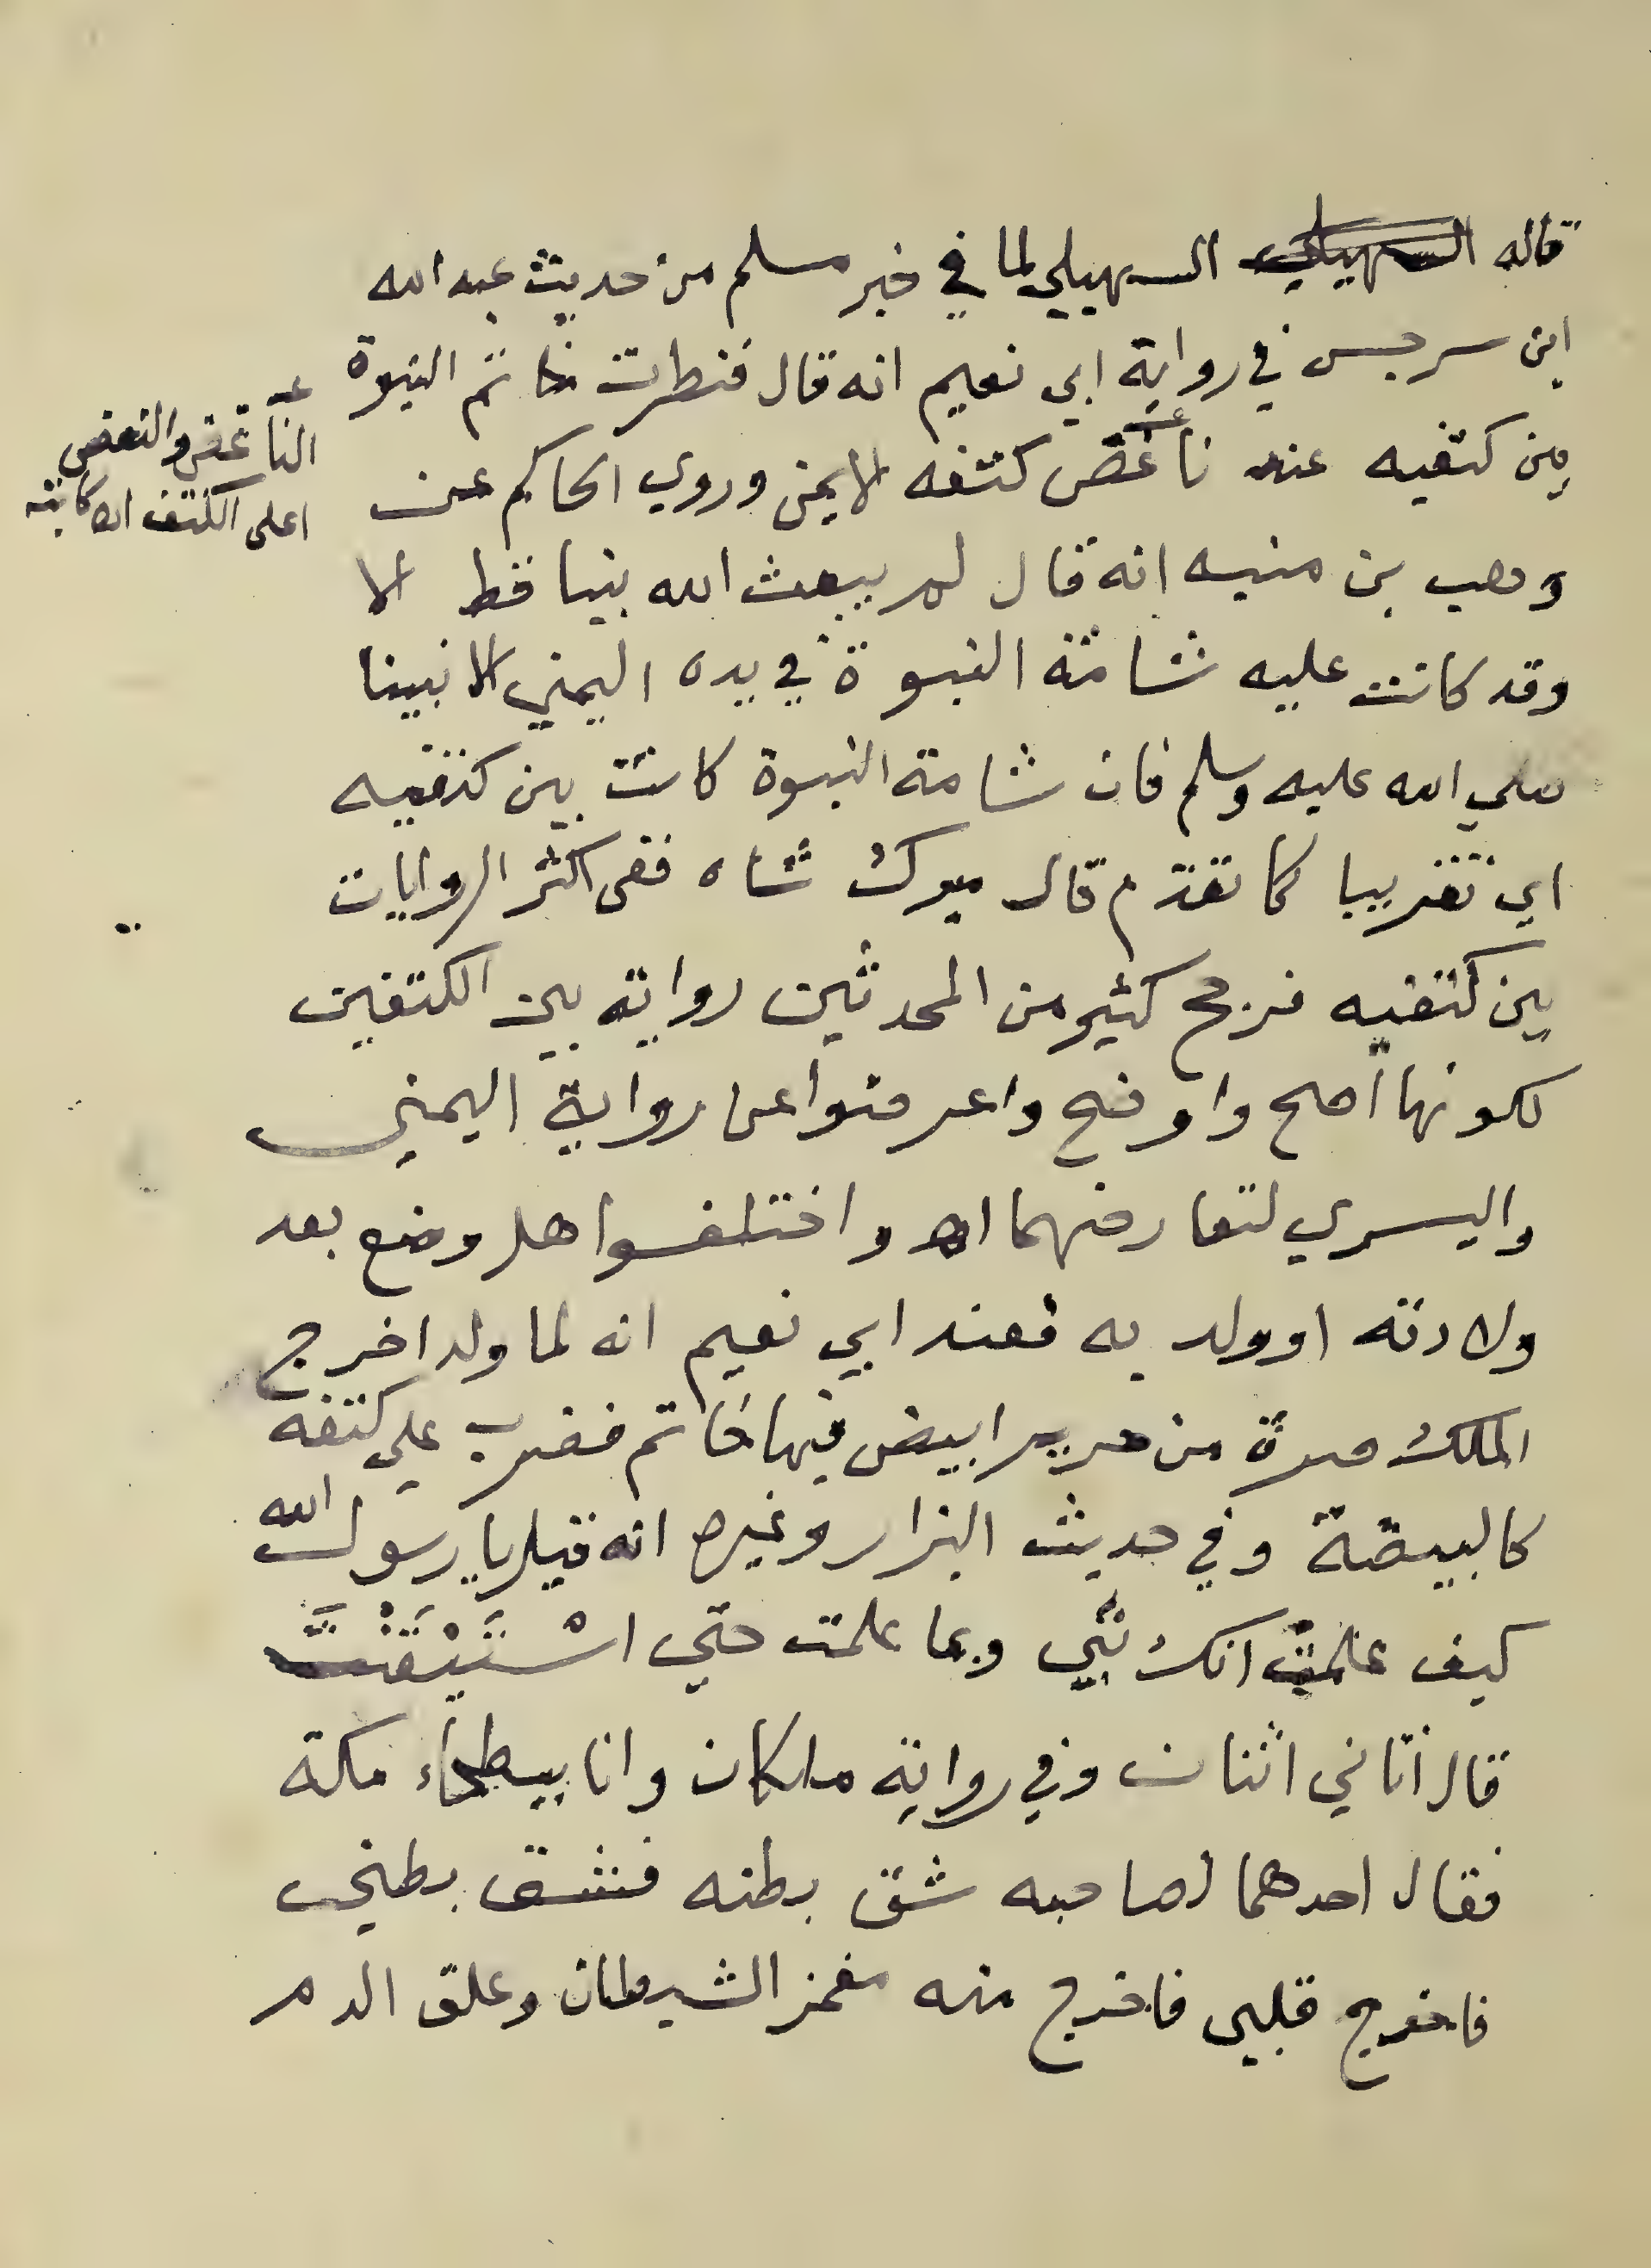 قاله السهيلي لما في خبر مسلم من حديث عبد الله
ابن سرجس في رواية ابي نعيم انه قال فنظرت خاتم النبوة
بين كتفيه عند ناغض كتفه الايمن وروي الحاكم عن
وهب بن منبه انه قال لم يبعث الله نبيا قط الا
وقد كانت عليه شامة النبوة في يده اليمني الا نبينا
صلي الله عليه وسلم فان شامة النبوة كانت بين كتفيه
اي تقريبا كما تقدم قال ميرك شاه ففي اكثر الروايات
بين كتفيه فرجح كثير من المحدثين رواية بين الكتفين
لكونها اصح واوضح واعرضوا عن رواية اليمني
واليسري لتعارضهما اه واختلفوا هل وضع بعد
ولادته او ولد به فعند ابي نعيم انه لما ولد اخرج
الملك صرة من حرير ابيض فيها خاتم فضرب علي كتفه
كالبيضة وفي حديث البزار وغيره انه قيل يا رسول الله
كيف علمت انك نبي وبما علمت حتي اسْتَيْقَنْتَ
قال أتاني اثنان وفي رواية ملكان وانا ببطحاء مكة
فقال احدهما لصاحبه شق بطنه فشق بطني
فاخرج قلبي فاخرج منه مغمز الشيطان وعلق الدم
الناغض والنغض
اعلى الكتف اه